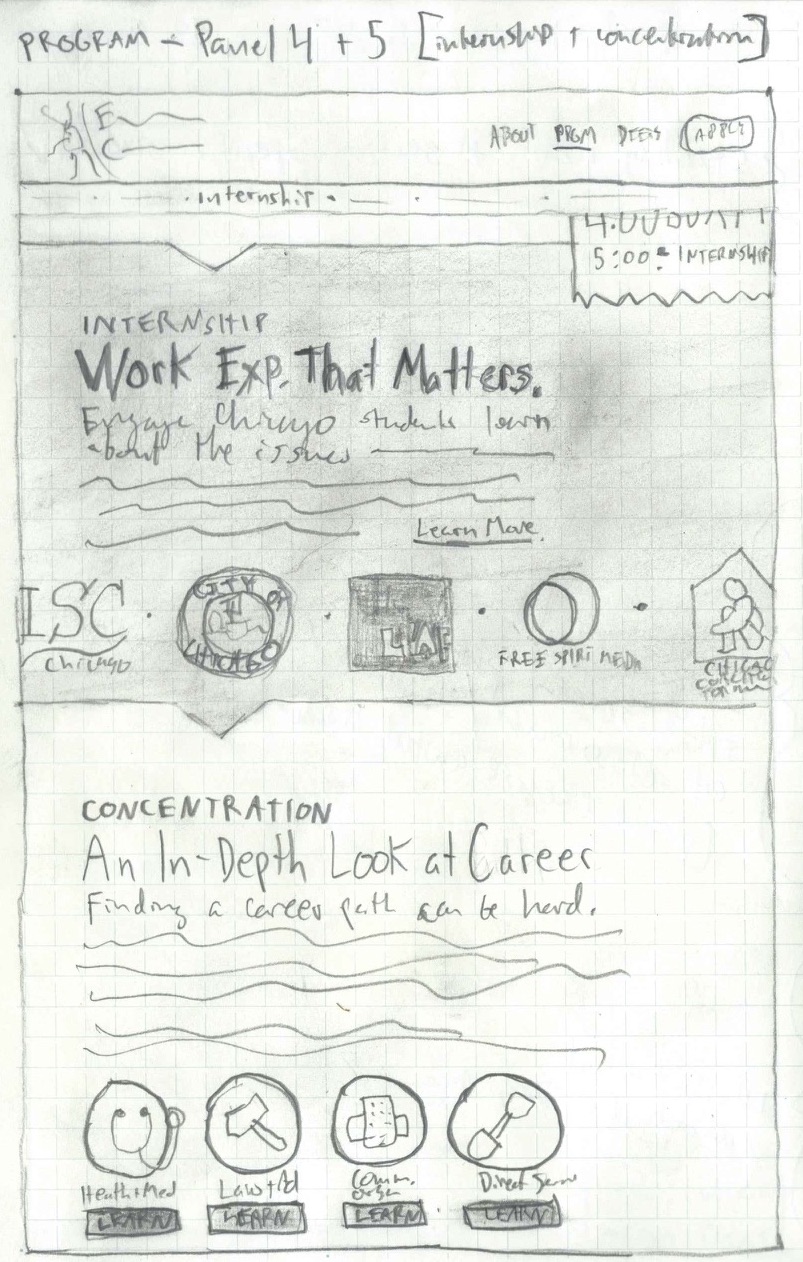 PROGRAM - Panel 4 + 5 [internship + concentration]
E
C
ABOUT PRGM DEETS APPLY
Internship
5:00 - INTERNSHIP
INTERNSHIP
Work Exp. That Matters.
Engage Chicago students learn
about the issues
Learn More.
ISC
Chicago
CITY OF
CHICAGO
FREE SPIRIT MEDIA
CONCENTRATION
An In-Depth Look at Career
Finding a career path can be hard.
Health + Med
Law +
Comm.
Direct Serv
LEARN
LEARN
LEARN
LEARN